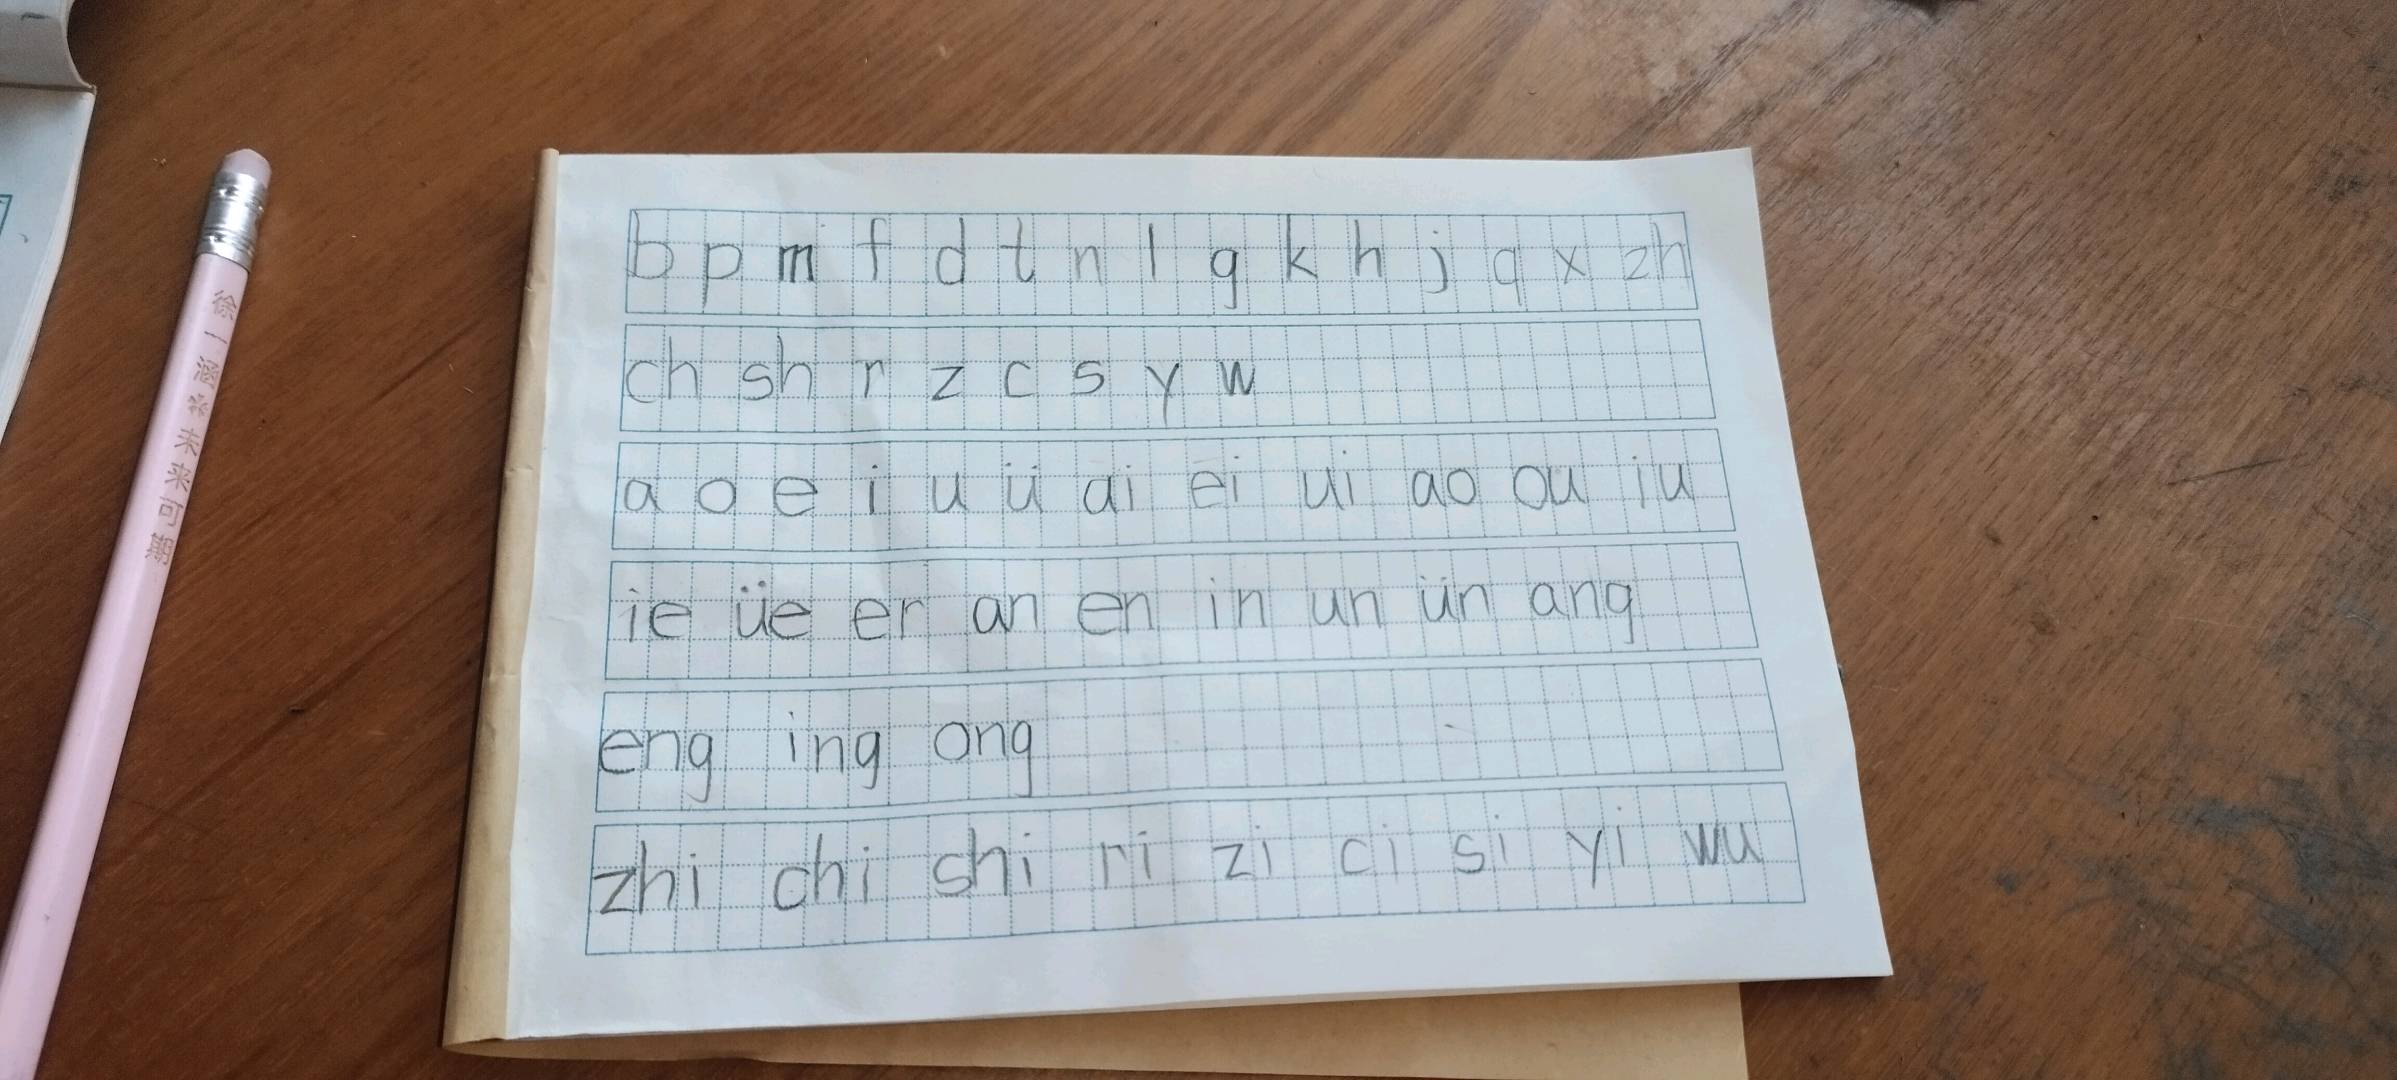 b p m f d t n l g k h j q x zh
ch sh r z c s y w
a o e i u ü ai ei ui ao ou iu
ie üe er an en in un ün ang
eng ing ong
zhi chi shi ri zi ci si yi wu